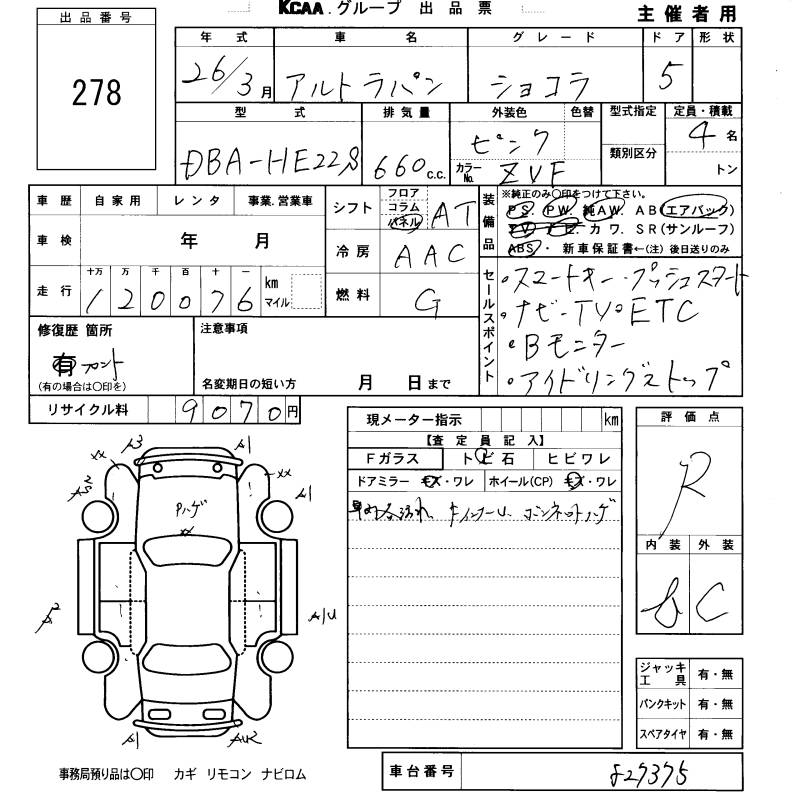 KCAA グループ 出品票
主催者用
出品番号
278
年式 車名 グレード ドア 形状
26/3月 アルトラパン ショコラ 5
型式 排気量 外装色 色替 型式指定 定員・積載
DBA-HE22S 660 c.c. ピンク 4名
カラーNo. ZVF 類別区分 トン
車歴 自家用 レンタ 事業.営業車
シフト フロア コラム パネル AT
装備品
※純正のみ○印をつけて下さい。
PS. PW. 純AW. AB(エアバッグ)
TV ナビ カワ. SR(サンルーフ)
ABS・新車保証書←(注)後日送りのみ
車検 年 月
冷房 AAC
走行 十万 万 千 百 十 一 km マイル
120076
燃料 G
セールスポイント
・スマートキー・プッシュスタート
・ナビ-TV・ETC
・Bモニター
・アイドリングストップ
修復歴 箇所
有 フロント
(有の場合は○印を)
注意事項
名変期日の短い方 月 日まで
リサイクル料 9070円
現メーター指示 km
【査定員記入】
Fガラス トビ石 ヒビワレ
ドアミラー キズ・ワレ ホイール(CP) キズ・ワレ
ボンネットハゲ
評価点
R
内装 外装
C
ジャッキ工具 有・無
パンクキット 有・無
スペアタイヤ 有・無
A3 A1
xx xx
A1
Pハゲ
x
A/U
A1
事務局預り品は○印 カギ リモコン ナビロム
車台番号 527375